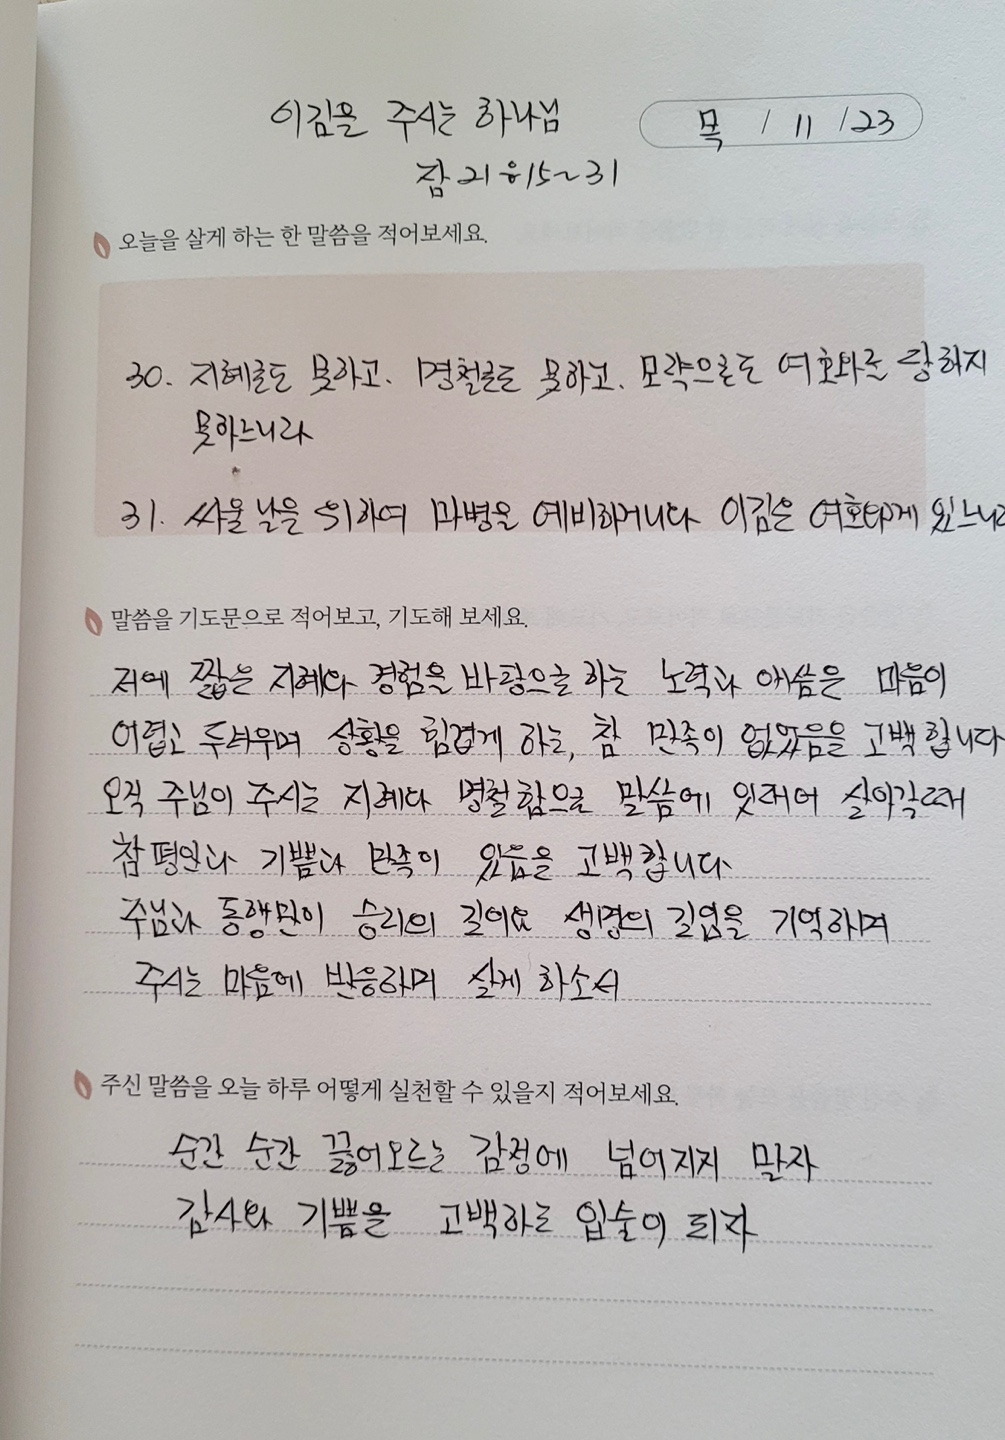 이김을 주시는 하나님
목 / 11 / 23
잠 21:15~31
오늘을 살게 하는 한 말씀을 적어보세요.
30. 지혜로도 못하고, 명철로도 못하고, 모략으로도 여호와를 당하지
못하느니라
31. 싸울 날을 위하여 마병을 예비하거니와 이김은 여호와께 있느니라
말씀을 기도문으로 적어보고, 기도해 보세요.
저에 짧은 지혜와 경험을 바탕으로 하는 노력과 애씀은 마음이
어렵고 두려우며 상황을 힘겹게 하는, 참 만족이 없었음을 고백합니다
오직 주님이 주시는 지혜와 명철함으로 말씀에 잇대어 살아갈때
참 평안과 기쁨과 만족이 있음을 고백합니다
주님과 동행만이 승리의 길이요 생명의 길임을 기억하며
주시는 마음에 반응하며 살게 하소서
주신 말씀을 오늘 하루 어떻게 실천할 수 있을지 적어보세요.
순간 순간 끓어오르는 감정에 넘어지지 말자
감사와 기쁨을 고백하는 입술이 되자